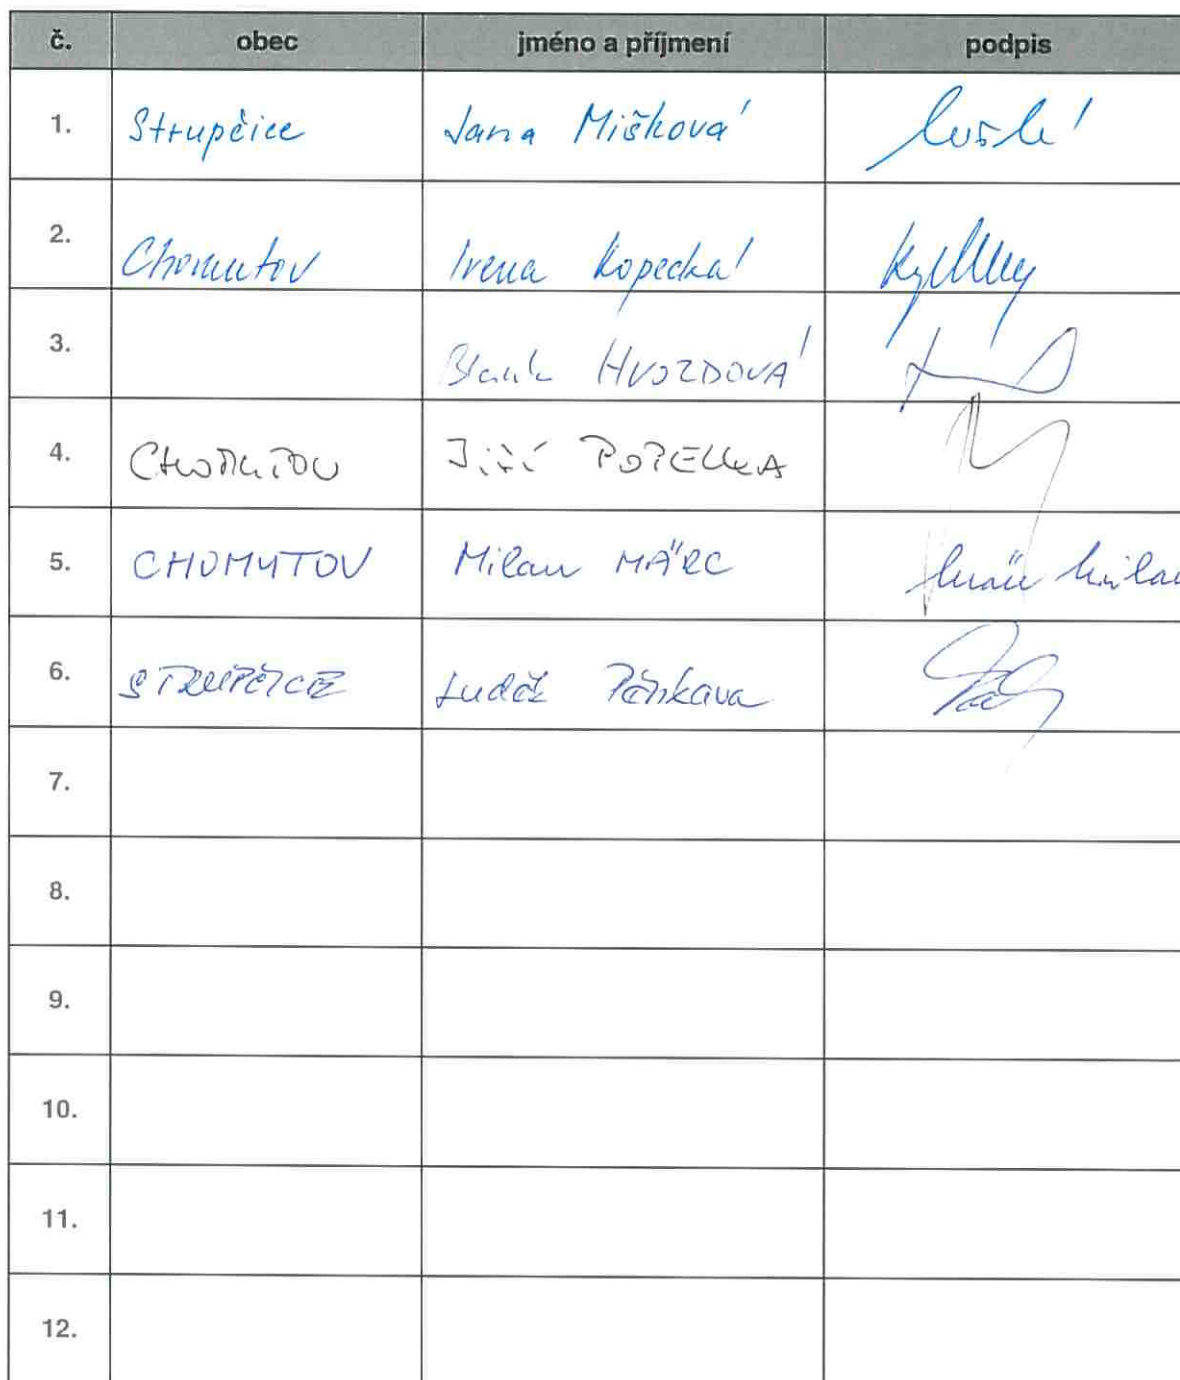 č. obec jméno a příjmení podpis
1. Strupčice Jana Mišková
2. Chomutov Irena Kopecká
3. HVOZDOVÁ
4. CHOMUTOV Jiří POPELKA
5. CHOMUTOV Milan MÄRC Milan
6. STRUPČICE Luděk Pěnkava
7.
8.
9.
10.
11.
12.